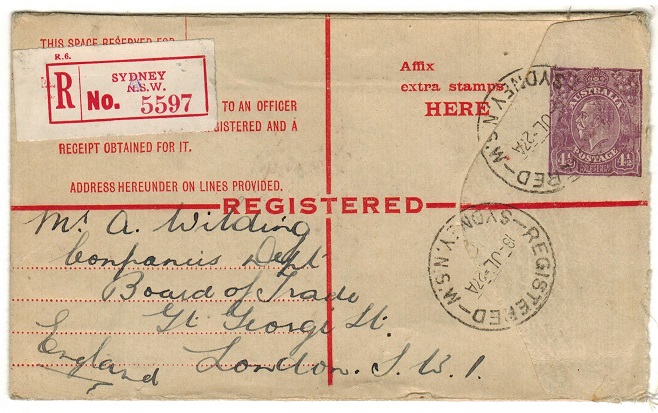 THIS SPACE RESERVED FOR
R.6.
R
SYDNEY
N.S.W.
No. 5597
TO AN OFFICER
REGISTERED AND A
RECEIPT OBTAINED FOR IT.
ADDRESS HEREUNDER ON LINES PROVIDED.
Affix
extra stamps
HERE
AUSTRALIA
4½ 4½
POSTAGE
SYDNEY N.S.W
JL-27A
REGISTERED
REGISTERED-M
18 JL-27A
SYDNEY.N.S.W
Mr A. Wilding
Companies Dept
Board of Trade
Gt George St.
London. S.W.1.
England